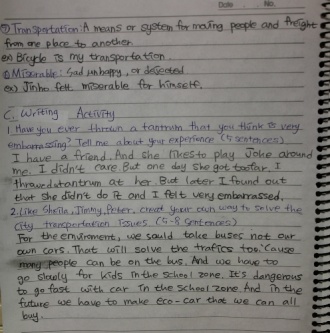 Date . . No.
⑤ Transportation: A means or system for moving people and freight
from one place to another
ex) Bicycle is my transportation.
⑥ Miserable: Sad unhappy, or dejected
ex) Jinho felt miserable for himself.
C. Writing Activity
1. Have you ever thrown a tantrum that you think is very
embarrassing? Tell me about your experience (5 sentences)
I have a friend. And she likes to play Joke around
me. I didn't care. But one day she got too far. I
throwed tantrum at her. But later I found out
that she didn't do it and I felt very embarrassed.
2. Like Sheila, Jimmy, Peter, creat your own way to solve the
city transportation issues. (5-8 Sentences)
For the enviroment, we sould take buses not our
own cars. That will solve the trafics too. 'Cause
many people can be on the bus. And we have to
go slowly for kids in the school zone. It's dangerous
to go fast with car in the school zone. And in the
future we have to make eco-car that we can all
buy.